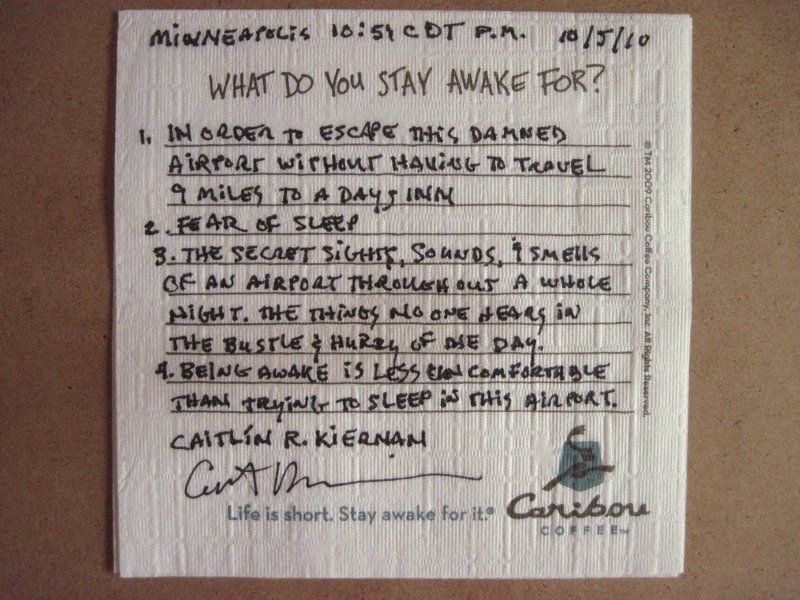 MINNEAPOLIS 10:54 CDT P.M. 10/5/10
WHAT DO YOU STAY AWAKE FOR?
1. IN ORDER TO ESCAPE THIS DAMNED
AIRPORT WITHOUT HAVING TO TRAVEL
9 MILES TO A DAYS INN
2. FEAR OF SLEEP
3. THE SECRET SIGHTS, SOUNDS, & SMELLS
OF AN AIRPORT THROUGHOUT A WHOLE
NIGHT. THE THINGS NO ONE HEARS IN
THE BUSTLE & HURRY OF THE DAY.
4. BEING AWAKE IS LESS UNCOMFORTABLE
THAN TRYING TO SLEEP IN THIS AIRPORT.
CAITLÍN R. KIERNAN
Life is short. Stay awake for it.®
Caribou
COFFEE™
© TM 2009 Caribou Coffee Company, Inc. All Rights Reserved.